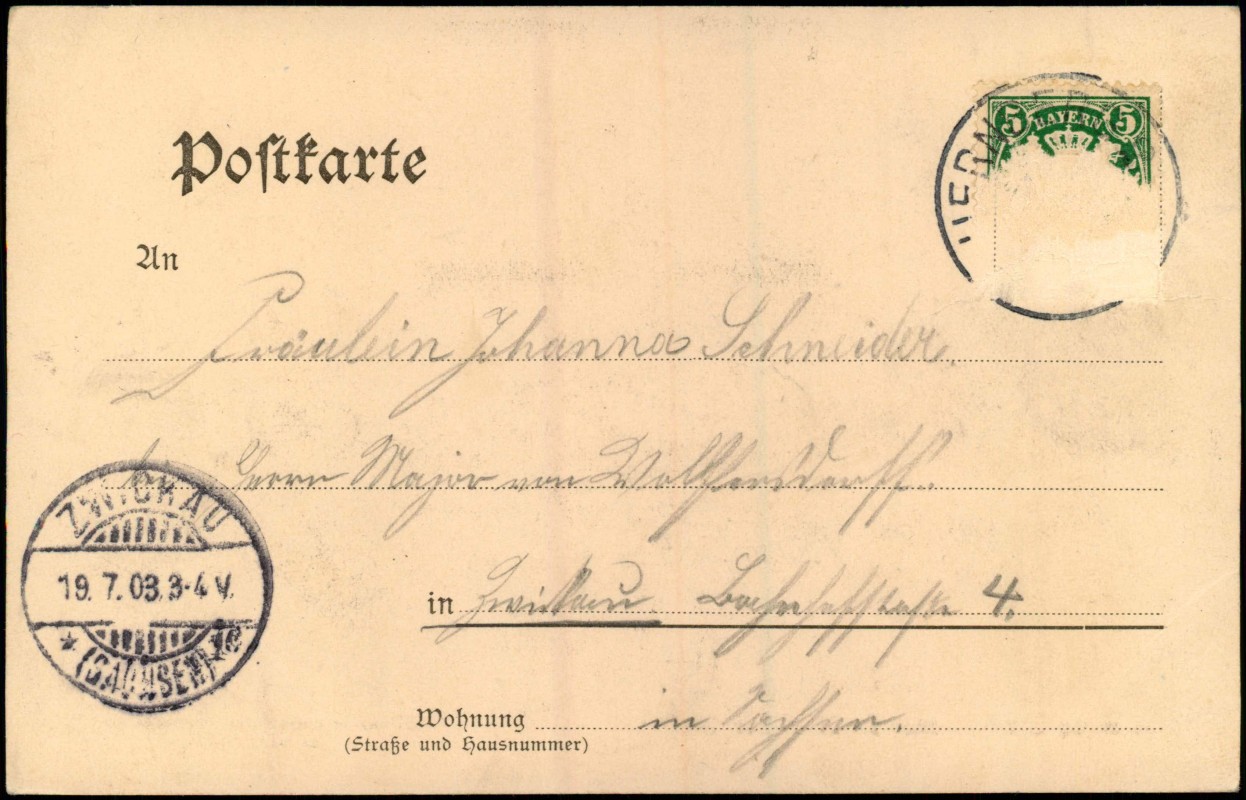 Postkarte
5 BAYERN 5
An
Fräulein Johanna Schneider.
Herrn Major von Wolffersdorff.
ZWICKAU
19. 7. 03. 3-4 V.
(SACHSEN)
in Zwickau. Bahnhofstraße 4.
Wohnung in Sachsen.
(Straße und Hausnummer)